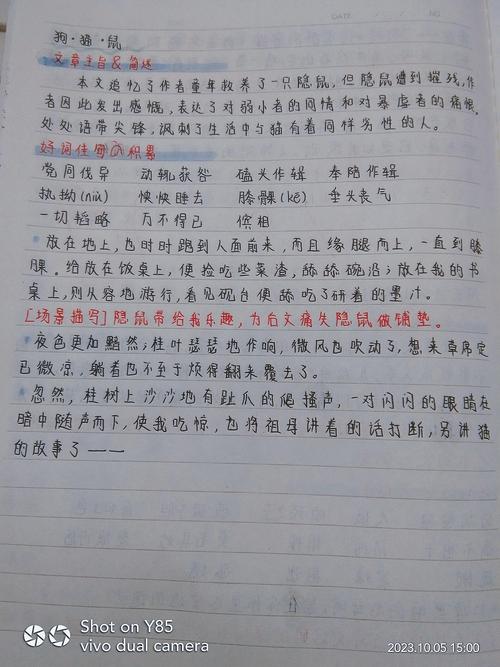 DATE NO
狗·猫·鼠
文章主旨&简述
本文追忆了作者童年救养了一只隐鼠,但隐鼠遭到摧残,作
者因此发出感慨,表达了对弱小者的同情和对暴虐者的痛恨。
处处语带尖锋,讽刺了生活中与猫有着同样劣性的人。
好词佳句积累
党同伐异 动辄获咎 磕头作辑 奉陪作辑
执拗(niù) 怏怏睡去 膝髁(kē) 垂头丧气
一切韬略 万不得已 傧相
放在地上,也时时跑到人面前来,而且缘腿而上,一直到膝
髁。给放在饭桌上,便捡吃些菜渣,舔舔碗沿;放在我的书
桌上,则从容地游行,看见砚台便舔吃了研着的墨汁。
[场景描写]隐鼠带给我乐趣,为后文痛失隐鼠做铺垫。
夜色更加黯然;桂叶瑟瑟地作响,微风也吹动了,想来草席定
已微凉,躺着也不至于烦得翻来覆去了。
忽然,桂树上沙沙地有趾爪的爬搔声,一对闪闪的眼睛在
暗中随声而下,使我吃惊,也将祖母讲着的话打断,另讲猫
的故事了——
Shot on Y85
vivo dual camera
2023.10.05 15:00